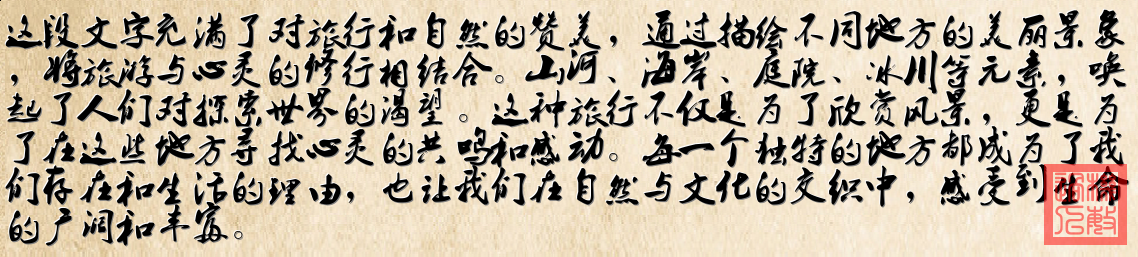 这段文字充满了对旅行和自然的赞美，通过描绘不同地方的美丽景象
，将旅游与心灵的修行相结合。山河、海岸、庭院、冰川等元素，唤
起了人们对探索世界的渴望。这种旅行不仅是为了欣赏风景，更是为
了在这些地方寻找心灵的共鸣和感动。每一个独特的地方都成为了我
们存在和生活的理由，也让我们在自然与文化的交织中，感受到生命
的广阔和丰富。